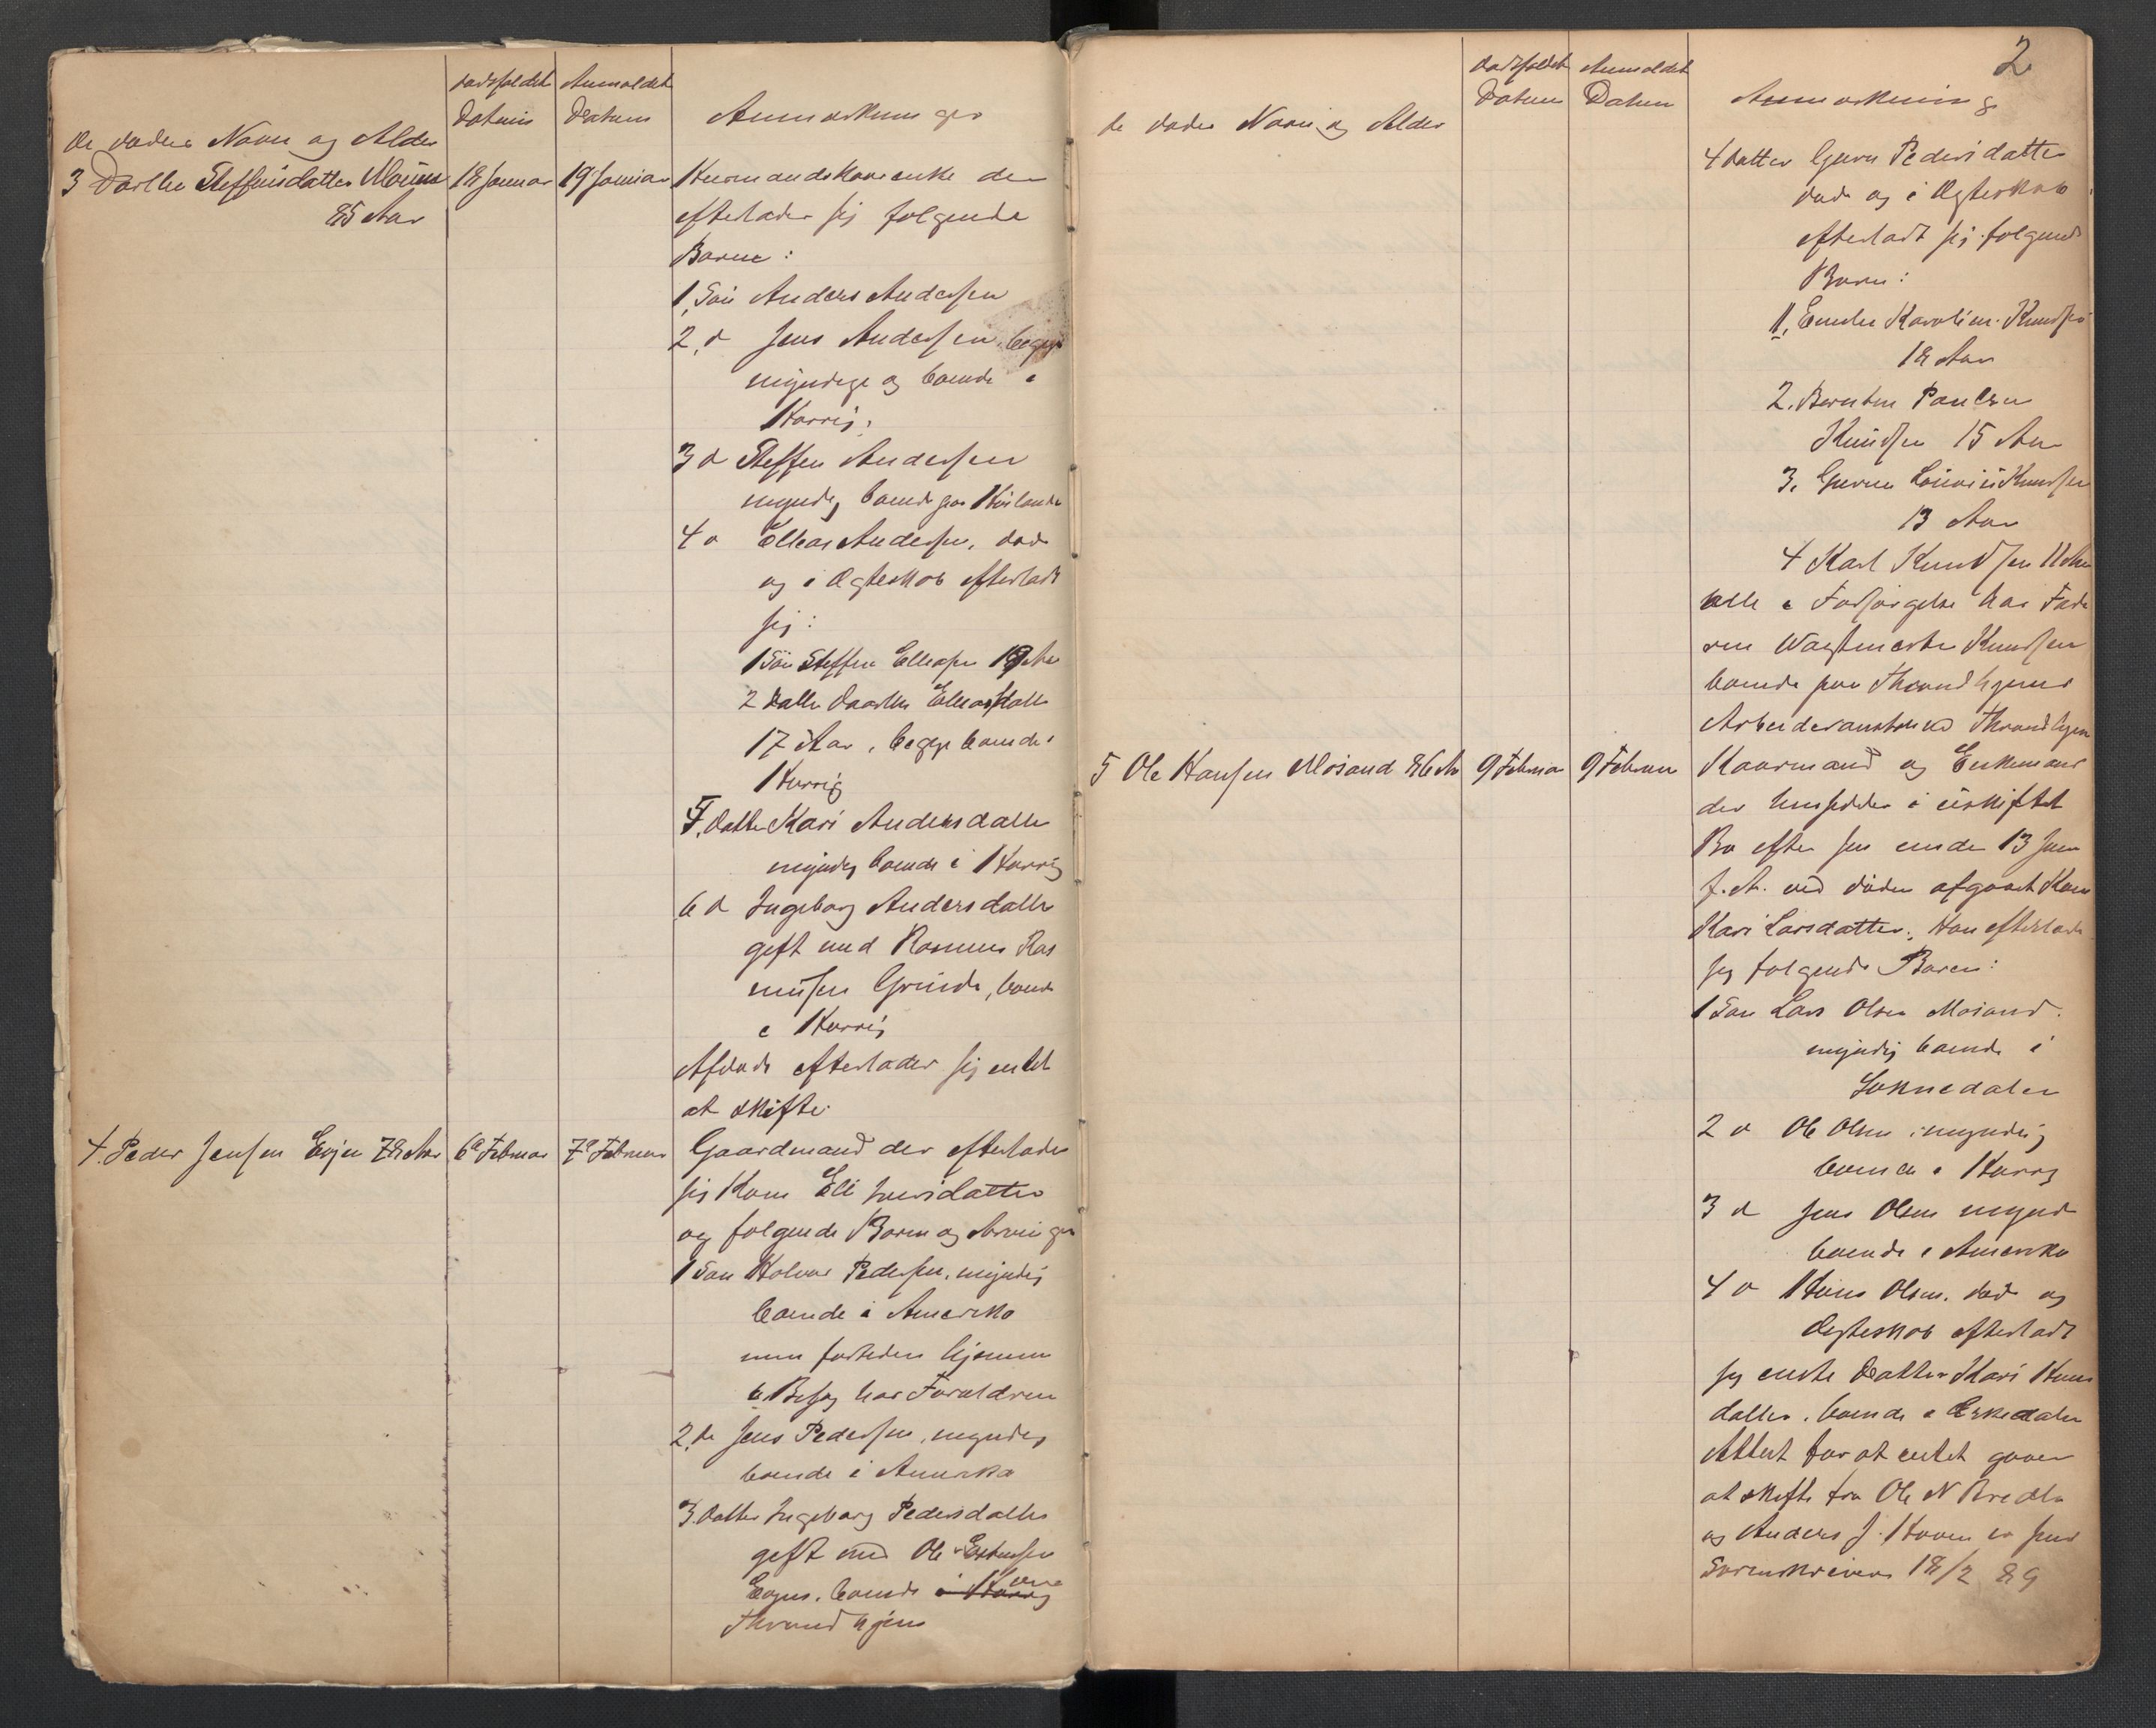 de dødes Navn og Alder
dødsfaldet Datum
Anmeldet Datum
Anmerkninger
3 Dorthe Steffensdatter Moum
85 Aar
18 Januar
19 Januar
Huusmandskaarenke der
efterlader sig følgende
Børn:
1, Søn Anders Andersen
2, d Jens Andersen, begge
myndige og boende i
Horrig.
3 d Steffen Andersen
myndig boende paa
4 d Ellias Andersen, død
og i Ægteskab efterladt
sig:
1 Søn Steffen Elliasen 19 Aar
2 Datter Dorthe Elliasdatter
17 Aar, begge boende i
Horrig
5, Datter Kari Andersdatter
myndig boende i Horrig
6 d Ingeborg Andersdatter
gift med Rasmus Ras
musen Grinde, boende
i Horrig
Afdøde efterlader sig intet
at skifte.
4. Peder Jensen Evjen 78 Aar
6te Februar
7de Februar
Gaardmand der efterlader
sig Kone Eli Iversdatter
og følgende Børn og Arvinger
1 Søn Halvor Pedersen, myndig
boende i Amerika
men fortiden hjemme
i Besøg hos Forældrene
2, de Jens Pedersen, myndig
boende i Amerika
3. Datter Ingeborg Pedersdatter
gift med Ole Estensen
Evjen, boende i Horrig
Throndhjem
2
de dødes Navn og Alder
dødsfaldet Datum
Anmeldet Datum
Anmerkning
4 datter Guru Pedersdatter
død og i Ægteskab
efterladt sig følgende
Børn:
1, Emilie Karoline Knudsen
18 Aar
2. Berntin Paulsen
Knudsen 15 Aar
3. Gurine Lovise Knudsen
13 Aar
4 Karl Knudsen 11 Aar
alle i Forsørgelse hos Fade
ren Vagtmester Knudsen
boende paa Throndhjems
Arbeideranstalt Throndhjem
5 Ole Hansen Mosand 86 Aar
9 Februar
9 Februar
Kaarmand og Enkemand
der hensidder i uskiftet
Bo efter sin under 13 Juni
f. A. ved døden afgaaet Kone
Kari Larsdatter. Han efterlader
sig følgende Børn:
1 Søn Lars Olsen Mosand.
myndig boende i
Soknedalen
2 d Ole Olsen myndig
boende i Horrig
3 d Jens Olsen myndig
boende i Amerika
4 d Hans Olsen, død og
Ægteskab efterladt
sig eneste Datter Kari Hans
datter. boende i
Attest for at intet gaaer
at skifte fra Ole N Bredli
og Anders J. Hoven er send
Sorenskriveren 18/2 89